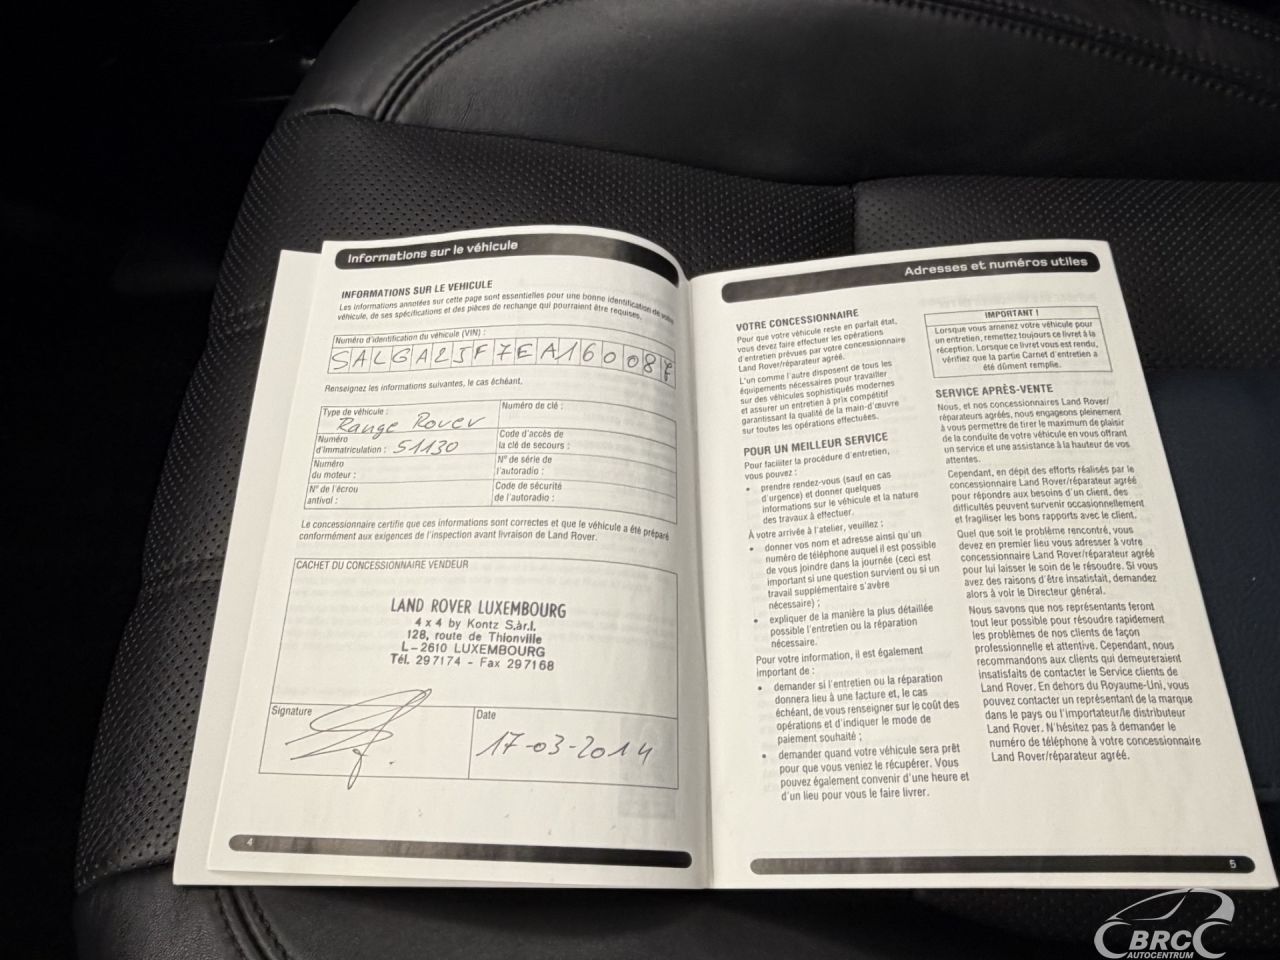 Informations sur le véhicule
INFORMATIONS SUR LE VEHICULE
Les informations annotées sur cette page sont essentielles pour une bonne identification de votre
véhicule, de ses spécifications et des pièces de rechange qui pourraient être requises.
Numéro d'identification du véhicule (VIN) :
SALGA25F7EA16008
Renseignez les informations suivantes, le cas échéant.
Type de véhicule : Range Rover
Numéro de clé :
Numéro
d'immatriculation : S1130
Code d'accès de
la clé de secours :
Numéro
du moteur :
N° de série de
l'autoradio :
N° de l'écrou
antivol :
Code de sécurité
de l'autoradio :
Le concessionnaire certifie que ces informations sont correctes et que le véhicule a été préparé
conformément aux exigences de l'inspection avant livraison de Land Rover.
CACHET DU CONCESSIONNAIRE VENDEUR
LAND ROVER LUXEMBOURG
4 x 4 by Kontz S.àr.l.
128, route de Thionville
L-2610 LUXEMBOURG
Tél. 297174 - Fax 297168
Signature
Date
17-03-2014
4
Adresses et numéros utiles
VOTRE CONCESSIONNAIRE
Pour que votre véhicule reste en parfait état,
vous devez faire effectuer les opérations
d'entretien prévues par votre concessionnaire
Land Rover/réparateur agréé.
L'un comme l'autre disposent de tous les
équipements nécessaires pour travailler
sur des véhicules sophistiqués modernes
et assurer un entretien à prix compétitif
garantissant la qualité de la main-d'œuvre
sur toutes les opérations effectuées.
POUR UN MEILLEUR SERVICE
Pour faciliter la procédure d'entretien,
vous pouvez :
• prendre rendez-vous (sauf en cas
d'urgence) et donner quelques
informations sur le véhicule et la nature
des travaux à effectuer.
À votre arrivée à l'atelier, veuillez :
• donner vos nom et adresse ainsi qu'un
numéro de téléphone auquel il est possible
de vous joindre dans la journée (ceci est
important si une question survient ou si un
travail supplémentaire s'avère
nécessaire) ;
• expliquer de la manière la plus détaillée
possible l'entretien ou la réparation
nécessaire.
Pour votre information, il est également
important de :
• demander si l'entretien ou la réparation
donnera lieu à une facture et, le cas
échéant, de vous renseigner sur le coût des
opérations et d'indiquer le mode de
paiement souhaité ;
• demander quand votre véhicule sera prêt
pour que vous veniez le récupérer. Vous
pouvez également convenir d'une heure et
d'un lieu pour vous le faire livrer.
IMPORTANT !
Lorsque vous amenez votre véhicule pour
un entretien, remettez toujours ce livret à la
réception. Lorsque ce livret vous est rendu,
vérifiez que la partie Carnet d'entretien a
été dûment remplie.
SERVICE APRÈS-VENTE
Nous, et nos concessionnaires Land Rover/
réparateurs agréés, nous engageons pleinement
à vous permettre de tirer le maximum de plaisir
de la conduite de votre véhicule en vous offrant
un service et une assistance à la hauteur de vos
attentes.
Cependant, en dépit des efforts réalisés par le
concessionnaire Land Rover/réparateur agréé
pour répondre aux besoins d'un client, des
difficultés peuvent survenir occasionnellement
et fragiliser les bons rapports avec le client.
Quel que soit le problème rencontré, vous
devez en premier lieu vous adresser à votre
concessionnaire Land Rover/réparateur agréé
pour lui laisser le soin de le résoudre. Si vous
avez des raisons d'être insatisfait, demandez
alors à voir le Directeur général.
Nous savons que nos représentants feront
tout leur possible pour résoudre rapidement
les problèmes de nos clients de façon
professionnelle et attentive. Cependant, nous
recommandons aux clients qui demeureraient
insatisfaits de contacter le Service clients de
Land Rover. En dehors du Royaume-Uni, vous
pouvez contacter un représentant de la marque
dans le pays ou l'importateur/le distributeur
Land Rover. N'hésitez pas à demander le
numéro de téléphone à votre concessionnaire
Land Rover/réparateur agréé.
5
BRC
AUTOCENTRUM